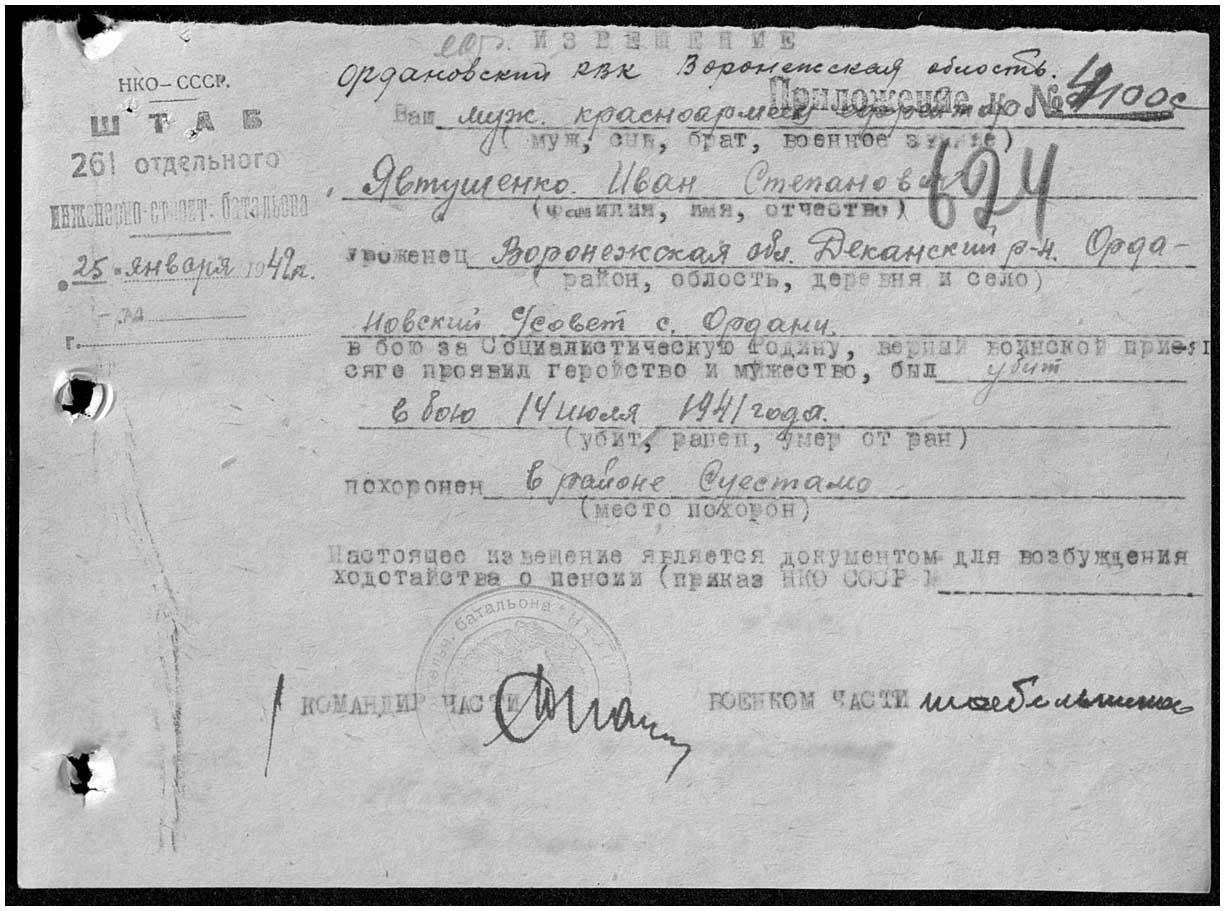 ИЗВЕЩЕНИЕ
НКО-СССР.
ШТАБ
261 отдельного
инженерно-строит. батальона
"25" января 1942г.
№
г.
Ордановский РВК Воронежская область.
Приложение к № 4100с
Ваш муж. красноармеец
(муж, сын, брат, военное звание)
624
Явтушенко. Иван Степанович
(фамилия, имя, отчество)
уроженец Воронежская обл. Деканский р-н. Орда-
(район, область, деревня и село)
новский с/совет с. Ордани.
в бою за Социалистическую Родину, верный воинской прися
сяге проявил геройство и мужество, был убит
в бою 14 июля 1941 года.
(убит, ранен, умер от ран)
похоронен в районе Суестамо
(место похорон)
Настоящее извещение является документом для возбуждения
ходотайства о пенсии (приказ НКО СССР №
батальона
КОМАНДИР ЧАСТИ
ВОЕНКОМ ЧАСТИ